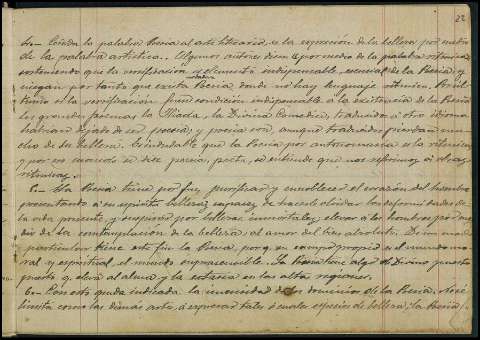 22
la palabra Poesia al arte literario, es la expresion de la belleza por medio
de la palabra artística. Algunos autores dicen q. por medio de la palabra rítmica,
sosteniendo que la versificacion es elemento indispensable, esencial de la Poesía, y
niegan por tanto que exista Poesía donde no hay lenguaje rítmico. Por úl-
timo si la versificacion fuera condicion indispensable á la existencia de la Poesía
los grandes poemas la Iliada, la Divina Comedia, traducidos á otro idioma
habrian dejado de ser poesía; y poesía son, aunque traducidos pierdan mu-
cho de su belleza. Es indudable que la Poesía por antonomasia es la rítmica,
y por eso cuando se dice poesía, poeta, se entiende que nos referimos al
rítmico.
La Poesía tiene por fin, purificar y ennoblecer el corazon del hombre
presentando á su espíritu bellezas capaces de hacerle olvidar las deformidades de
la vida presente, y inspirado por bellezas inmortales, elevar á los hombres por me-
dio de la contemplacion de la belleza, al amor del bien absoluto. De un modo
particular tiene este fin la Poesía, porq. su campo propio es el mundo mo-
ral y espiritual, el mundo suprasensible. La Poesía tiene algo de Divino puesto
puesto q. eleva al alma y la extasía en las altas regiones.
Con esto queda indicada la inmensidad de los dominios de la Poesía. No se
limita como las demás artes, á expresar tales ó cuales especies de belleza; la Poesía